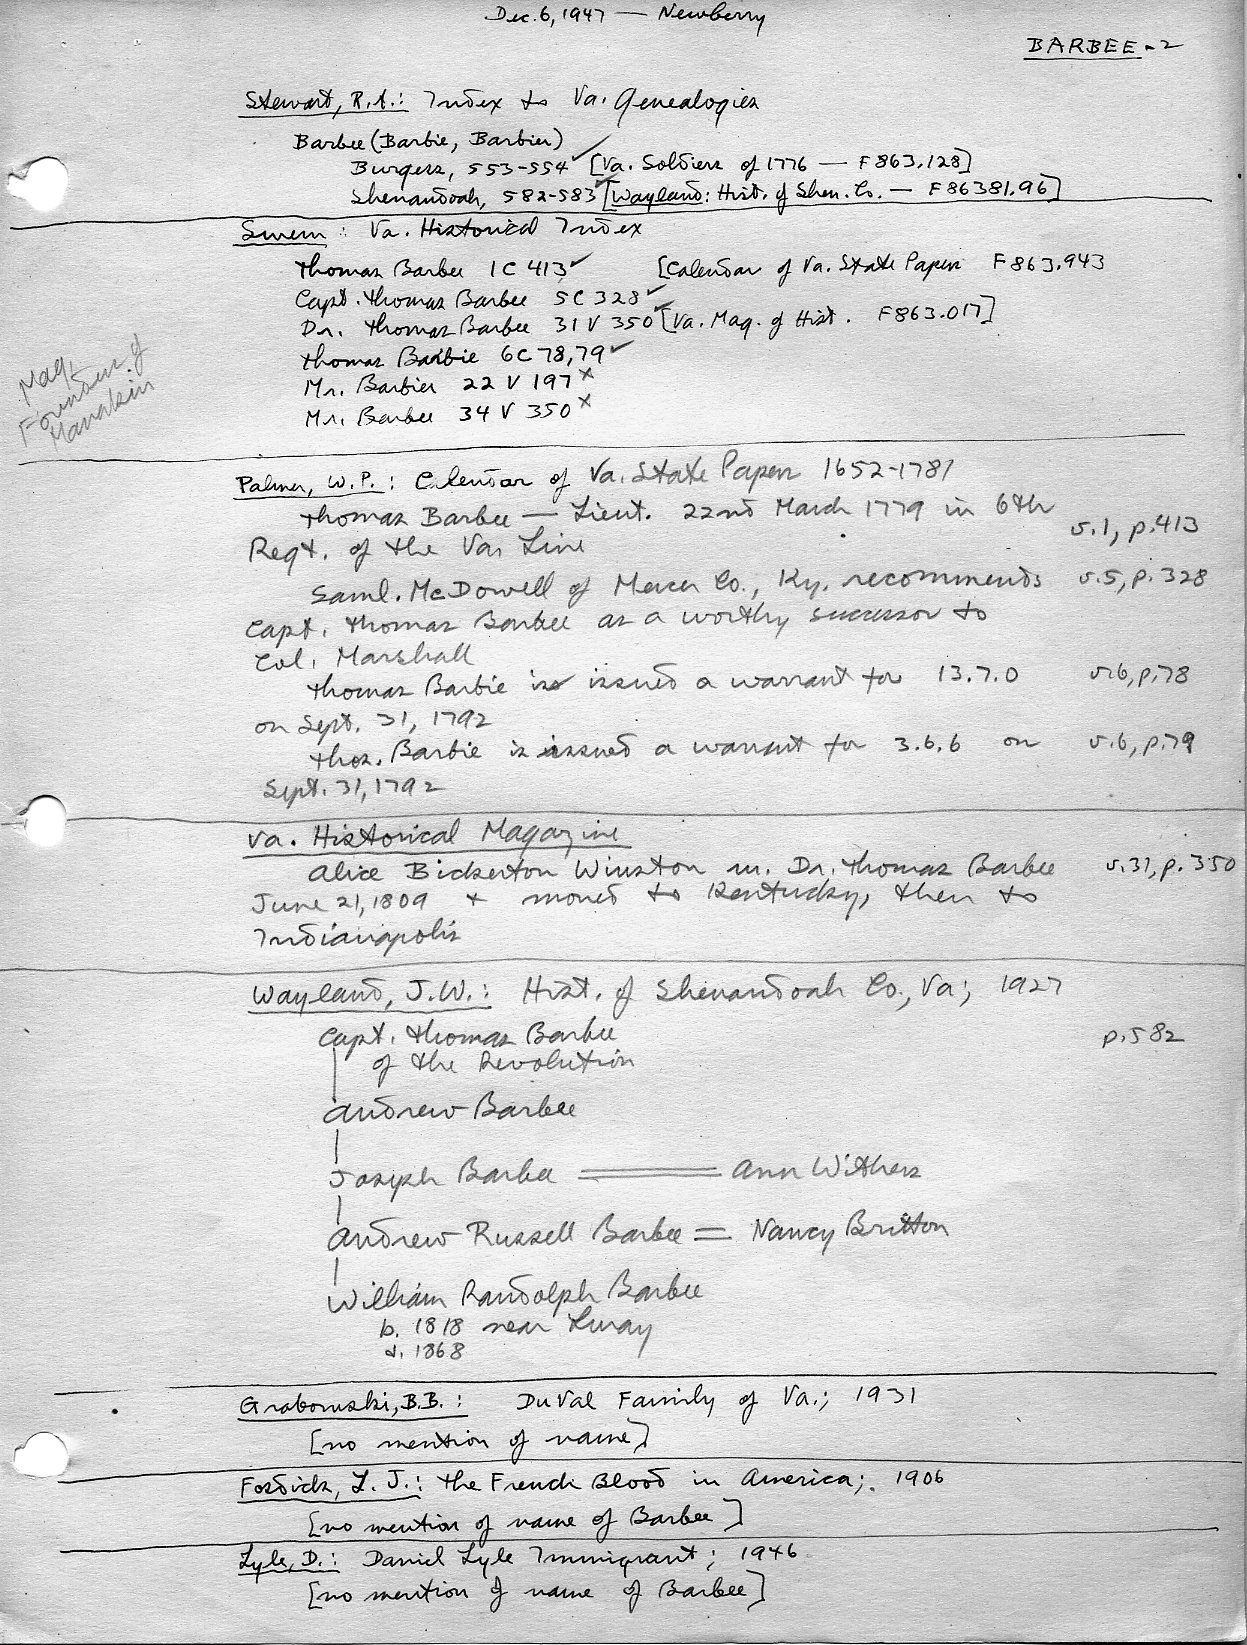 Dec. 6, 1947 — Newberry
BARBEE - 2
Stewart, R.A.: Index to Va. Genealogies
Barbee (Barbie, Barbier)
Burgess, 553-554 ✓ [Va. Soldiers of 1776 — F863.128]
Shenandoah, 582-583 ✓ [Wayland: Hist. of Shen. Co. — F86381.96]
Swem: Va. Historical Index
Thomas Barbee 1C 413 ✓ [Calendar of Va. State Papers F863.943
Capt. Thomas Barbee 5C 328 ✓
Dr. Thomas Barbee 31 V 350 ✓ [Va. Mag. of Hist. F863.017]
Thomas Barbie 6C 78,79 ✓
Mr. Barbier 22 V 197 x
Mr. Barbee 34 V 350 x
Mag.
Founders of
Manakin
Palmer, W.P.: Calendar of Va. State Papers 1652-1781
Thomas Barbee — Lieut. 22nd March 1779 in 6th v.1, p.413
Regt. of the Va. Line
Saml. McDowell of Mercer Co., Ky. recommends v.5, p.328
Capt. Thomas Barbee as a worthy successor to
Col. Marshall
Thomas Barbie is issued a warrant for 13.7.0 v.6, p.78
on Sept. 31, 1792
Thos. Barbie is issued a warrant for 3.6.6 on v.6, p.79
Sept. 31, 1792
Va. Historical Magazine
Alice Bickerton Winston m. Dr. Thomas Barbee v.31, p.350
June 21, 1809 + moved to Kentucky, then to
Indianapolis
Wayland, J.W.: Hist. of Shenandoah Co., Va; 1927
Capt. Thomas Barbee p.582
of the Revolution
Andrew Barbee
Joseph Barbee = Ann Withers
Andrew Russell Barbee = Nancy Britton
William Randolph Barbee
b. 1818 near Luray
d. 1868
Grabowski, B.B.: DuVal Family of Va.; 1931
[no mention of name]
Fosdick, L. J.: The French Blood in America; 1906
[no mention of name of Barbee]
Lyle, D.: Daniel Lyle Immigrant; 1946
[no mention of name of Barbee]